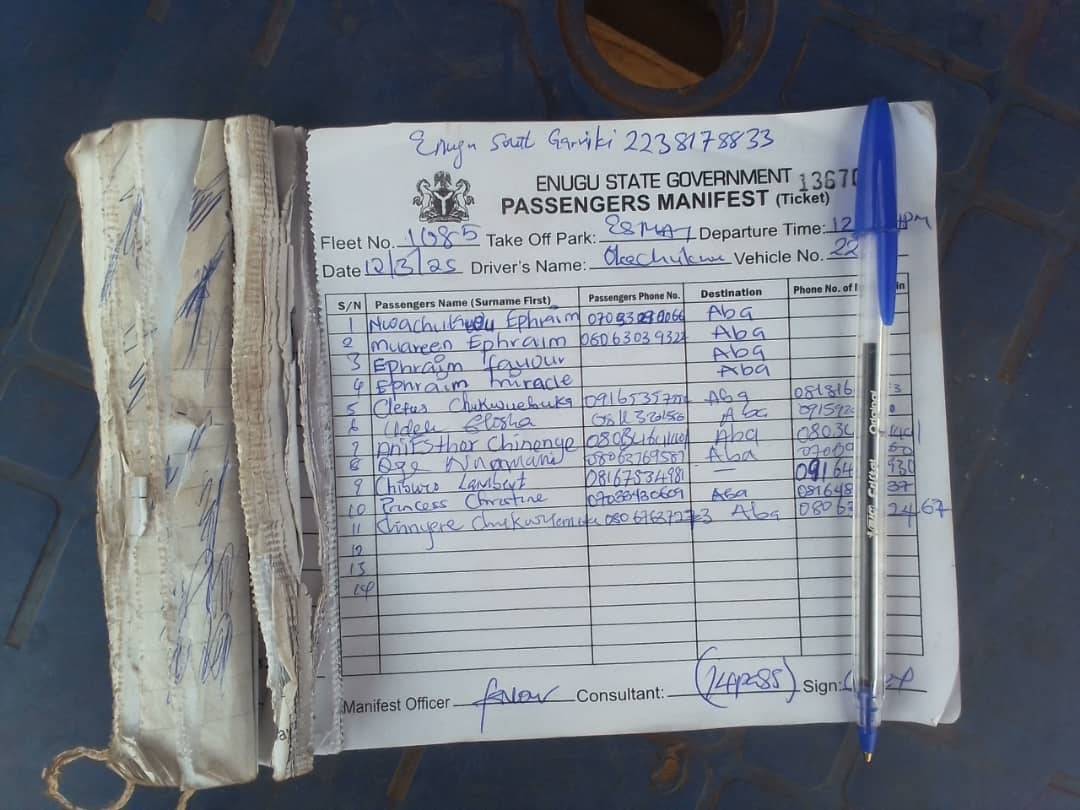 Enugu South Garriki 2238178833
ENUGU STATE GOVERNMENT 13670
PASSENGERS MANIFEST (Ticket)
Fleet No. 1085 Take Off Park: ESMAT Departure Time: 12 PM
Date 12/3/25 Driver's Name: Okechukwu Vehicle No. 22
S/N Passengers Name (Surname First) Passengers Phone No. Destination Phone No. of
1 Nwachukwu Ephraim Aba
2 Muareen Ephraim 0806303932 Aba
3 Ephraim favour Aba
4 Ephraim miracle Aba
5 Clefus Chukwuebuka Aba 081816 3
6 Udeh Aba
7 Ani Esther Chinenye Aba 0803
8 Oge Nnamani 08063769587 Aba
9 Chioma Lambert 08167534981 — 09164 930
10 Princess Christine 07038430609 Aba 081648 37
11 Chinyere 08067637273 Aba 08063 2467
12
13
14
Manifest Officer Consultant: (14 pass) Sign: